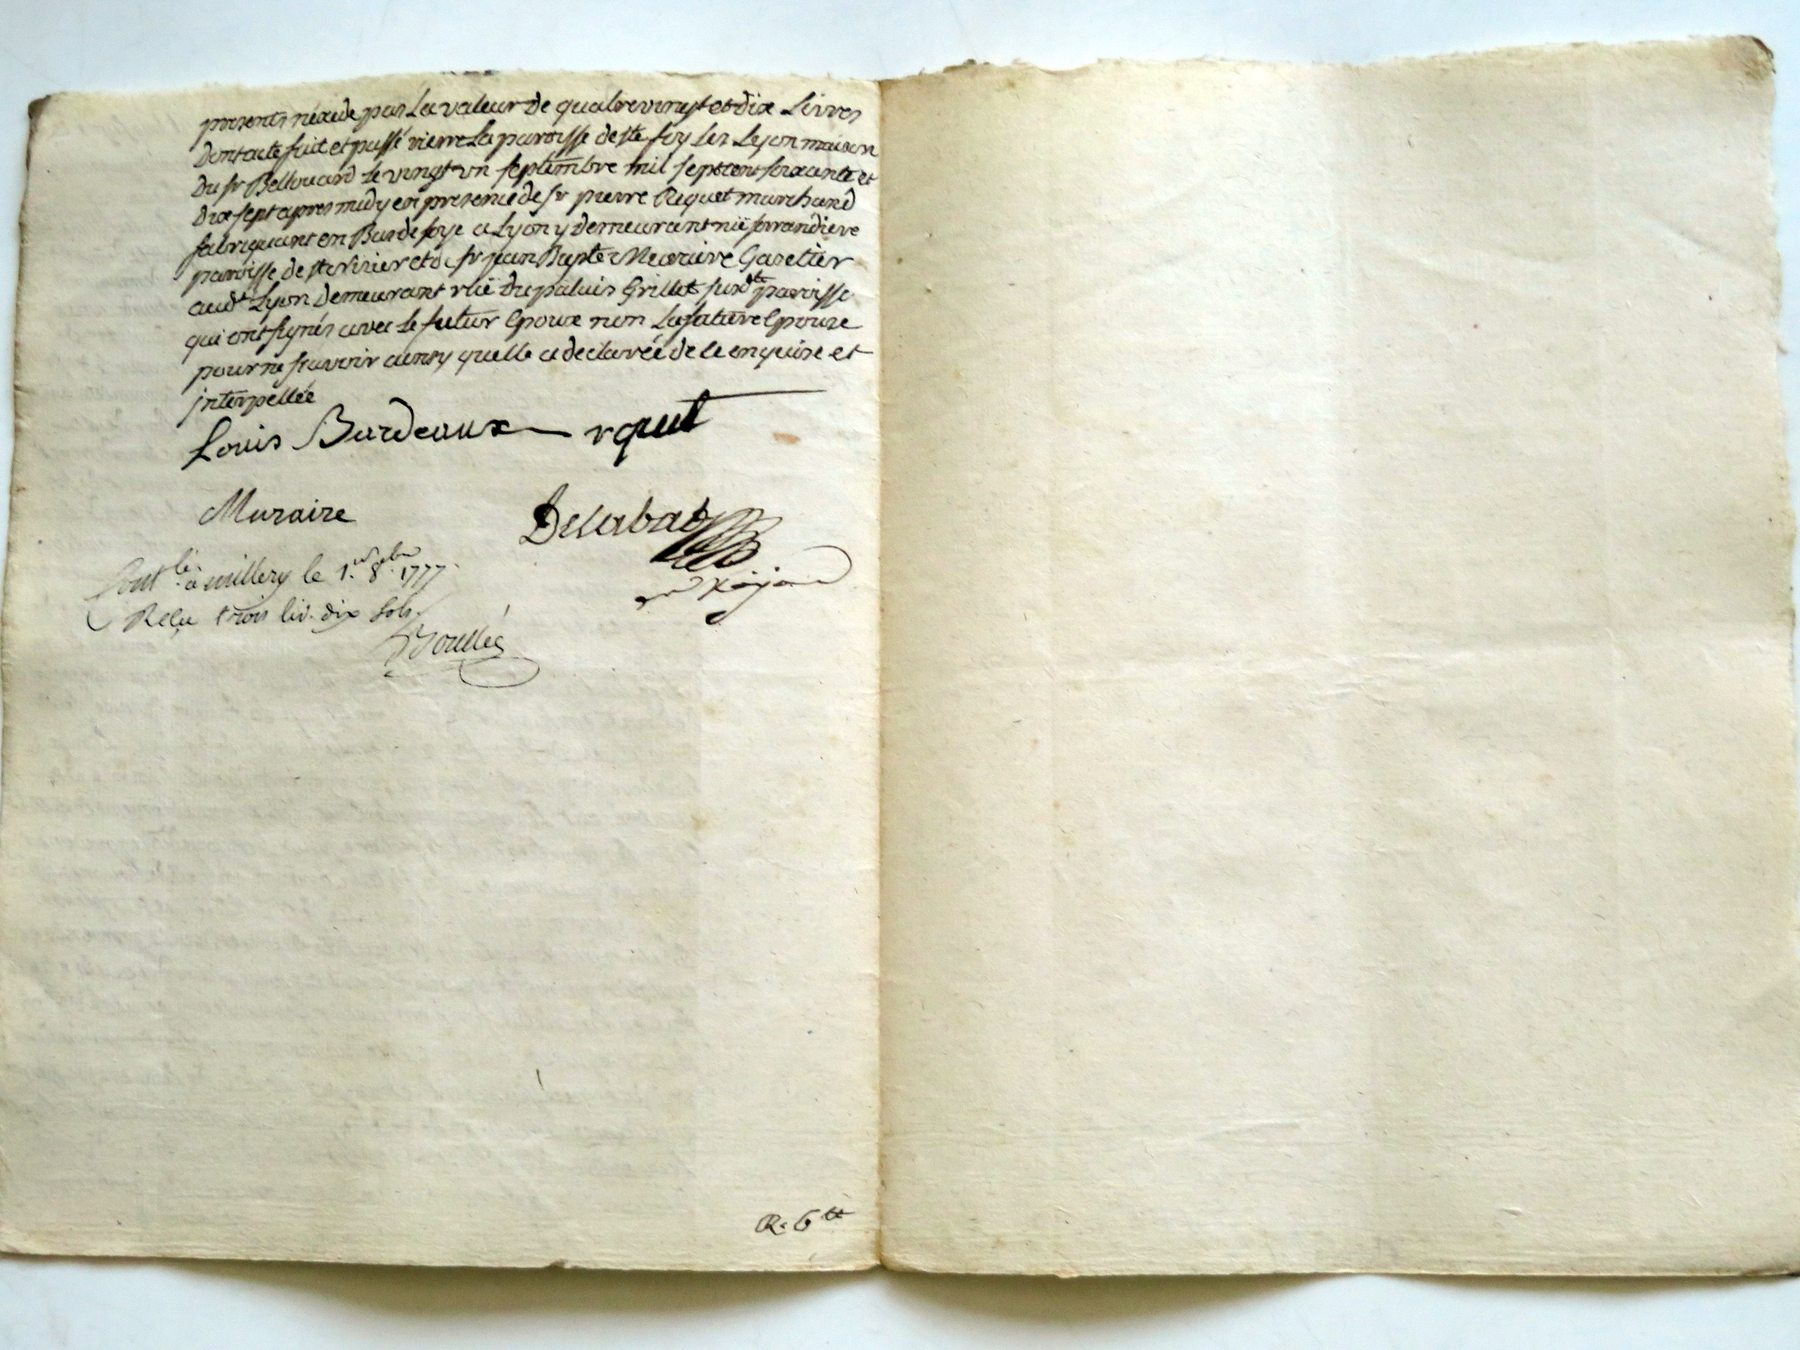 presents n'éxéde pas La valeur De quatrevingt et dix Livres
Dont acte fait et passé rierre La paroisse de ste foy Les Lyon maison
Du sr Bellouard Le vingt un septembre mil sept cent soixante et
Dix sept apres midy en presence de sr pierre Riquet marchand
fabriquant en Bas de soye a Lyon y demeurant rüe ferrandiere
paroisse de st Nizier et de sr jean Bapte Muraire Gazetier
audt Lyon Demeurant rüe Du palais Grillet susdte paroisse
qui ont signés avec Le futur Epoux non La future Epouze
pour ne scavoir ainsy quelle a declarée de ce enquise et
interpellée
Louis Bardeaux riquet
Muraire Delabat
Contlé a millery le 1er 8bre 1777.
Reçu trois liv. dix sols
Boullée
R. 6 tt